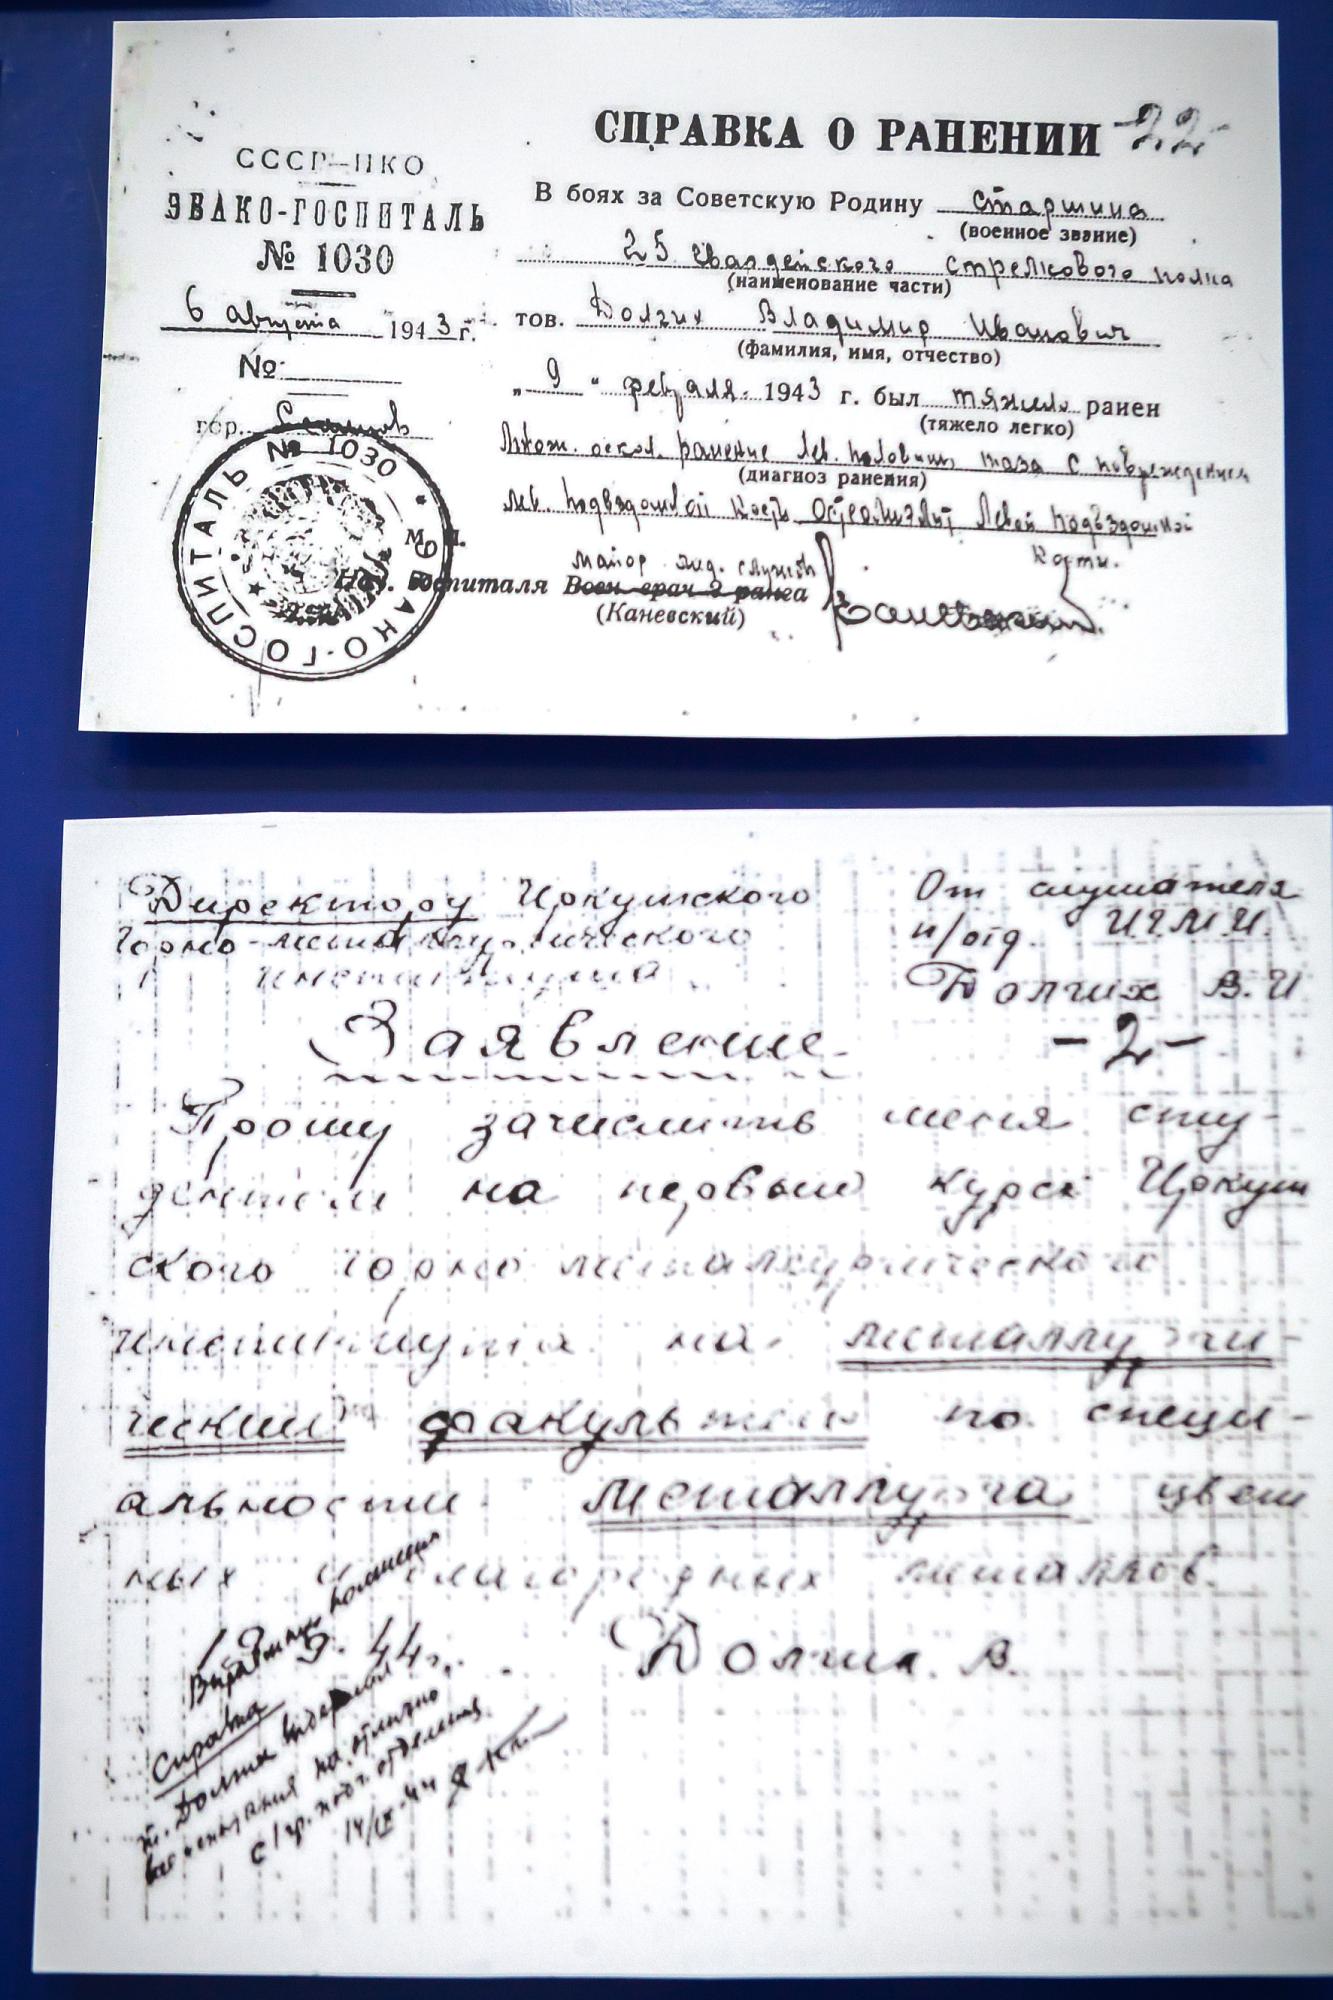 СССР—НКО
ЭВАКО-ГОСПИТАЛЬ
№ 1030
6 августа 1943 г.
№
гор.
ЭВАКО-ГОСПИТАЛЬ № 1030
М. П.
СПРАВКА О РАНЕНИИ -22-
В боях за Советскую Родину старшина
(военное звание)
25 гвардейского стрелкового полка
(наименование части)
тов. Долгих Владимир Иванович
(фамилия, имя, отчество)
„9“ февраля 1943 г. был тяжело ранен
(тяжело легко)
оскол. ранение лев. половины таза с повреждением
(диагноз ранения)
лев. подвздошной кости Остеомиэлит левой подвздошной
кости.
майор мед. службы
Нач. госпиталя Воен-врач 2 ранга
(Каневский)
Директору Иркутского
горно-металлургического
института
От слушателя
п/отд. ИГМИ.
Долгих В.И
-2-
Заявление.
Прошу зачислить меня сту-
дентом на первый курс Иркут
ского горно металлургического
института на металлурги-
ческий факультет по специ-
альности металлурга цвет
ных и благородных металлов.
19. 9. 44 г. Долгих. В.
Справка
т. Долгих выдержал
все испытания на отлично
с 1 гр. подг. отделения.
14/IX-44